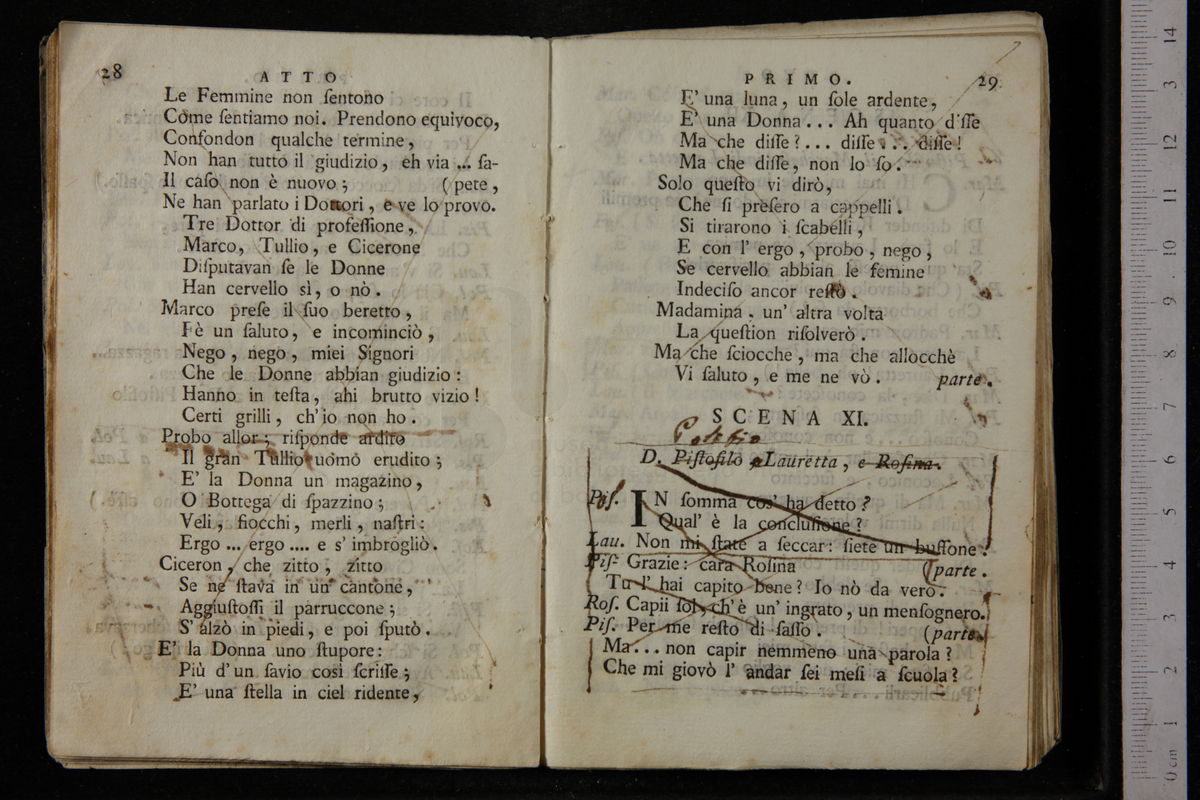 28
ATTO
Le Femmine non ſentono
Come ſentiamo noi. Prendono equivoco,
Confondon qualche termine,
Non han tutto il giudizio, eh via ... ſa-
Il caſo non è nuovo; (pete,
Ne han parlato i Dottori, e ve lo provo.
Tre Dottor di profeſſione,
Marco, Tullio, e Cicerone
Diſputavan ſe le Donne
Han cervello sì, o nò.
Marco preſe il ſuo beretto,
Fè un ſaluto, e incominciò,
Nego, nego, miei Signori
Che le Donne abbian giudizio:
Hanno in teſta, ahi brutto vizio!
Certi grilli, ch'io non ho.
Probo allor; riſponde ardito
Il gran Tullio uomo erudito;
E' la Donna un magazino,
O Bottega di ſpazzino;
Veli, fiocchi, merli, naſtri:
Ergo ... ergo .... e s'imbrogliò.
Ciceron, che zitto, zitto
Se ne ſtava in un cantone,
Aggiuſtoſſi il parruccone;
S'alzò in piedi, e poi ſputò.
E' la Donna uno ſtupore:
Più d'un ſavio così ſcriſſe;
E' una ſtella in ciel ridente,
PRIMO.
29
E' una luna, un ſole ardente,
E' una Donna... Ah quanto d'ſſe
Ma che diſſe?... diſſe... diſſe!
Ma che diſſe, non lo ſo.
Solo queſto vi dirò,
Che ſi preſero a cappelli.
Si tirarono i ſcabelli,
E con l'ergo, probo, nego,
Se cervello abbian le femine
Indeciſo ancor reſtò.
Madamina, un'altra volta
La queſtion riſolverò.
Ma che ſciocche, ma che allocchè
Vi ſaluto, e me ne vò. parte.
SCENA XI.
D. Piſtofilo e Lauretta, e Roſina.
Piſ. IN ſomma cos' ha detto?
Qual' è la concluſione?
Lau. Non mi ſtate a ſeccar: ſiete un buffone.
Piſ. Grazie: cara Roſina (parte.
Tu l' hai capito bene? Io nò da vero.
Roſ. Capii ſol, ch'è un' ingrato, un menſognero.
Piſ. Per me reſto di ſaſſo. (parte.
Ma... non capir nemmeno una parola?
Che mi giovò l' andar ſei meſi a ſcuola?
0 cm 1 2 3 4 5 6 7 8 9 10 11 12 13 14